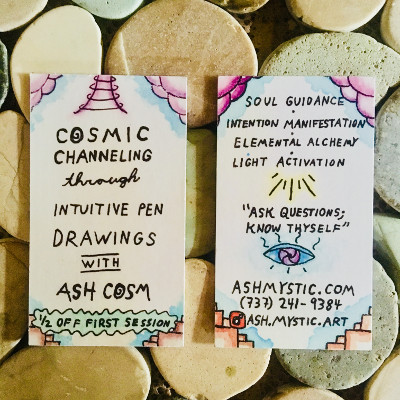 COSMIC
CHANNELING
through
INTUITIVE PEN
DRAWINGS
WITH
ASH COSM
1/2 OFF FIRST SESSION
SOUL GUIDANCE
•
INTENTION MANIFESTATION
•
ELEMENTAL ALCHEMY
•
LIGHT ACTIVATION
"ASK QUESTIONS;
KNOW THYSELF"
ASHMYSTIC.COM
(737) 241-9384
ASH.MYSTIC.ART